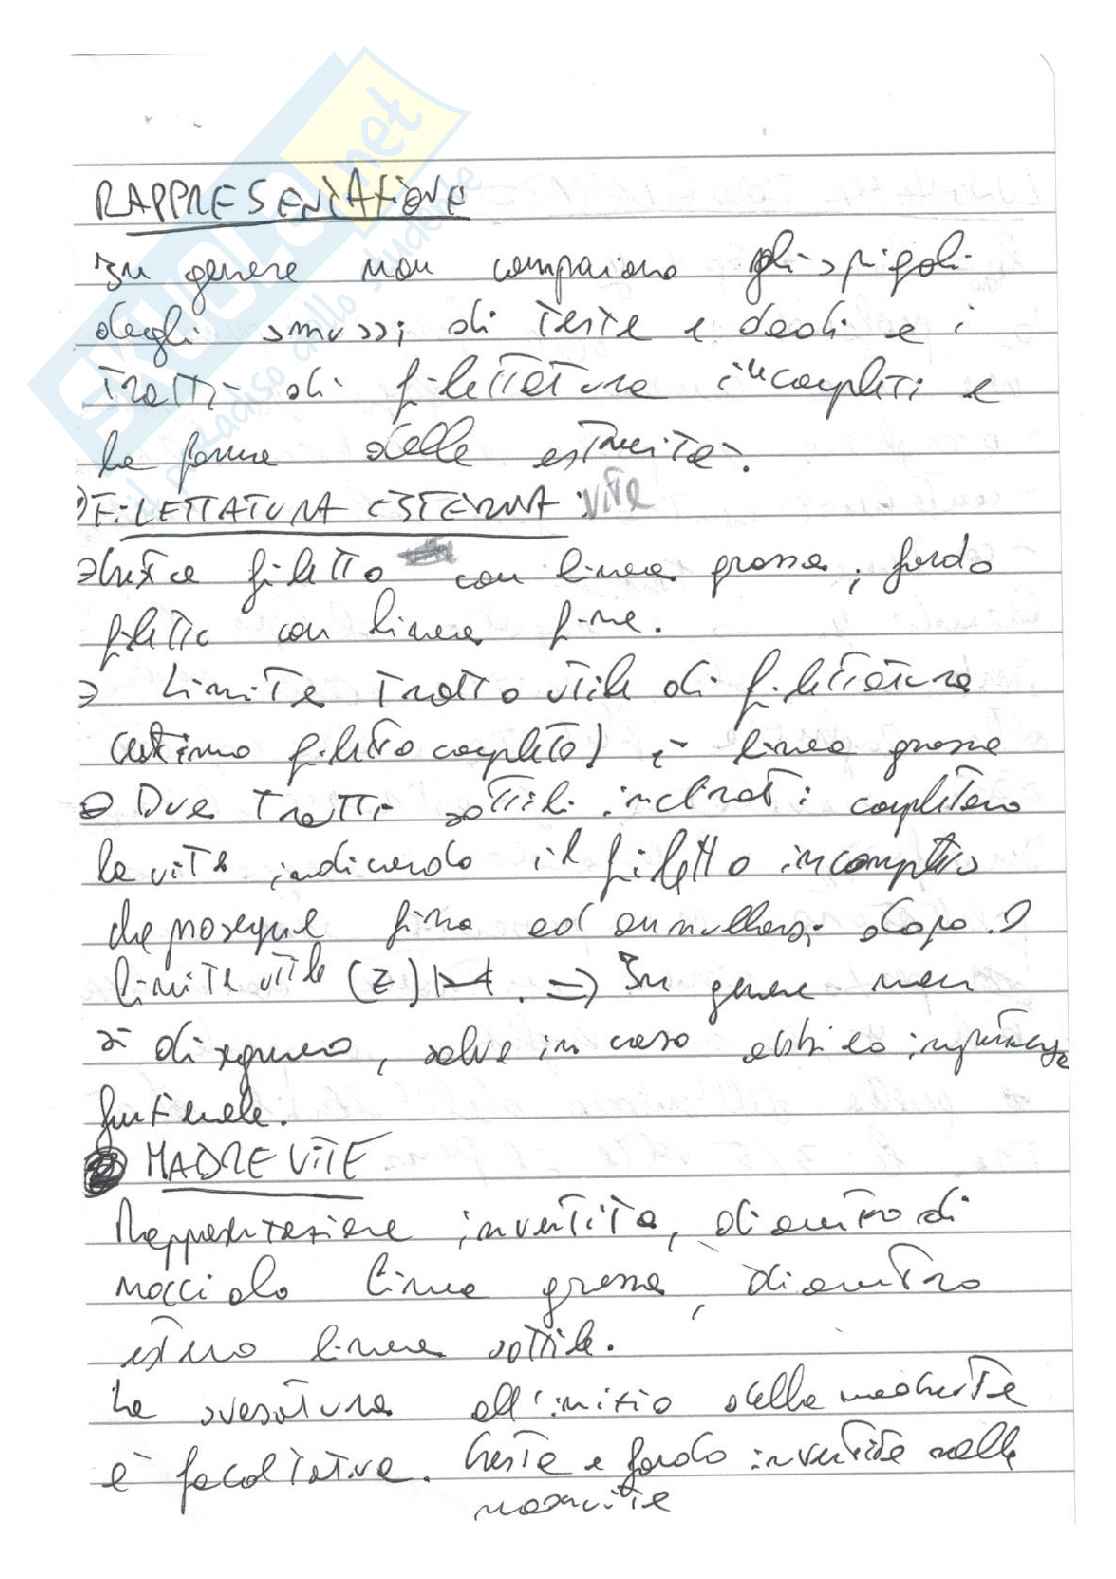 RAPPRESENTAZIONE
In genere non compaiono gli spigoli
degli smussi di teste e dadi e i
tratti di filettatura incompleti e
la forma delle estremità.
FILETTATURA ESTERNA: VITE
cresta filetto con linea grossa, fondo
filetto con linea fine.
Limite tratto utile di filettatura
(ultimo filetto completo) è linea grossa
Due tratti sottili inclinati completano
la vite indicando il filetto incompleto
che prosegue fino ad annullarsi dopo il
limite utile (z) . => In genere non
si disegnano, salvo in caso abbiano importanza
funzionale.
MADREVITE
Rappresentazione invertita, diametro di
nocciolo linea grossa, diametro
esterno linea sottile.
La svasatura all'inizio della madrevite
è facoltativa. Creste e fondo invertite nelle
madrevite
SKUOLA.net
il paradiso dello studente